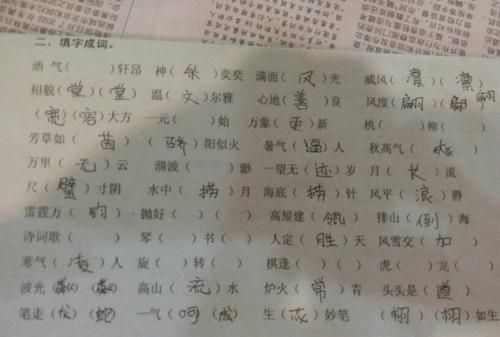 二、填字成词。
洒 气( )轩昂 神(采)奕奕 满面(风)光 威风(凛)(凛)
相貌(堂)(堂) 温(文)尔雅 心地(善)良 风度(翩)(翩)
(宽)(容)大方 一元( )始 万象(更)新 桃( )柳( )
芳草如(茵) ( )阳似火 暑气(逼)人 秋高气( )
万里(无)云 涸波( )渺 一望无( )岁 月(长)流
尺(璧)寸阴 水中(捞)月 海底(捞)针 风平(浪)静
雷霆万(钧) 抛好( )( ) 高屋建(瓴) 排山(倒)海
诗词歌( ) 琴( )书( ) 人定(胜)天 风雪交(加)
寒气(凌)人 旋( )转( ) 棋逢( )( ) 虎( )龙( )
波光(粼)(粼) 高山(流)水 炉火(常)青 头头是(道)
笔走(龙)(蛇) 一气(呵)(成) 生( )妙笔 (栩)(栩)如生